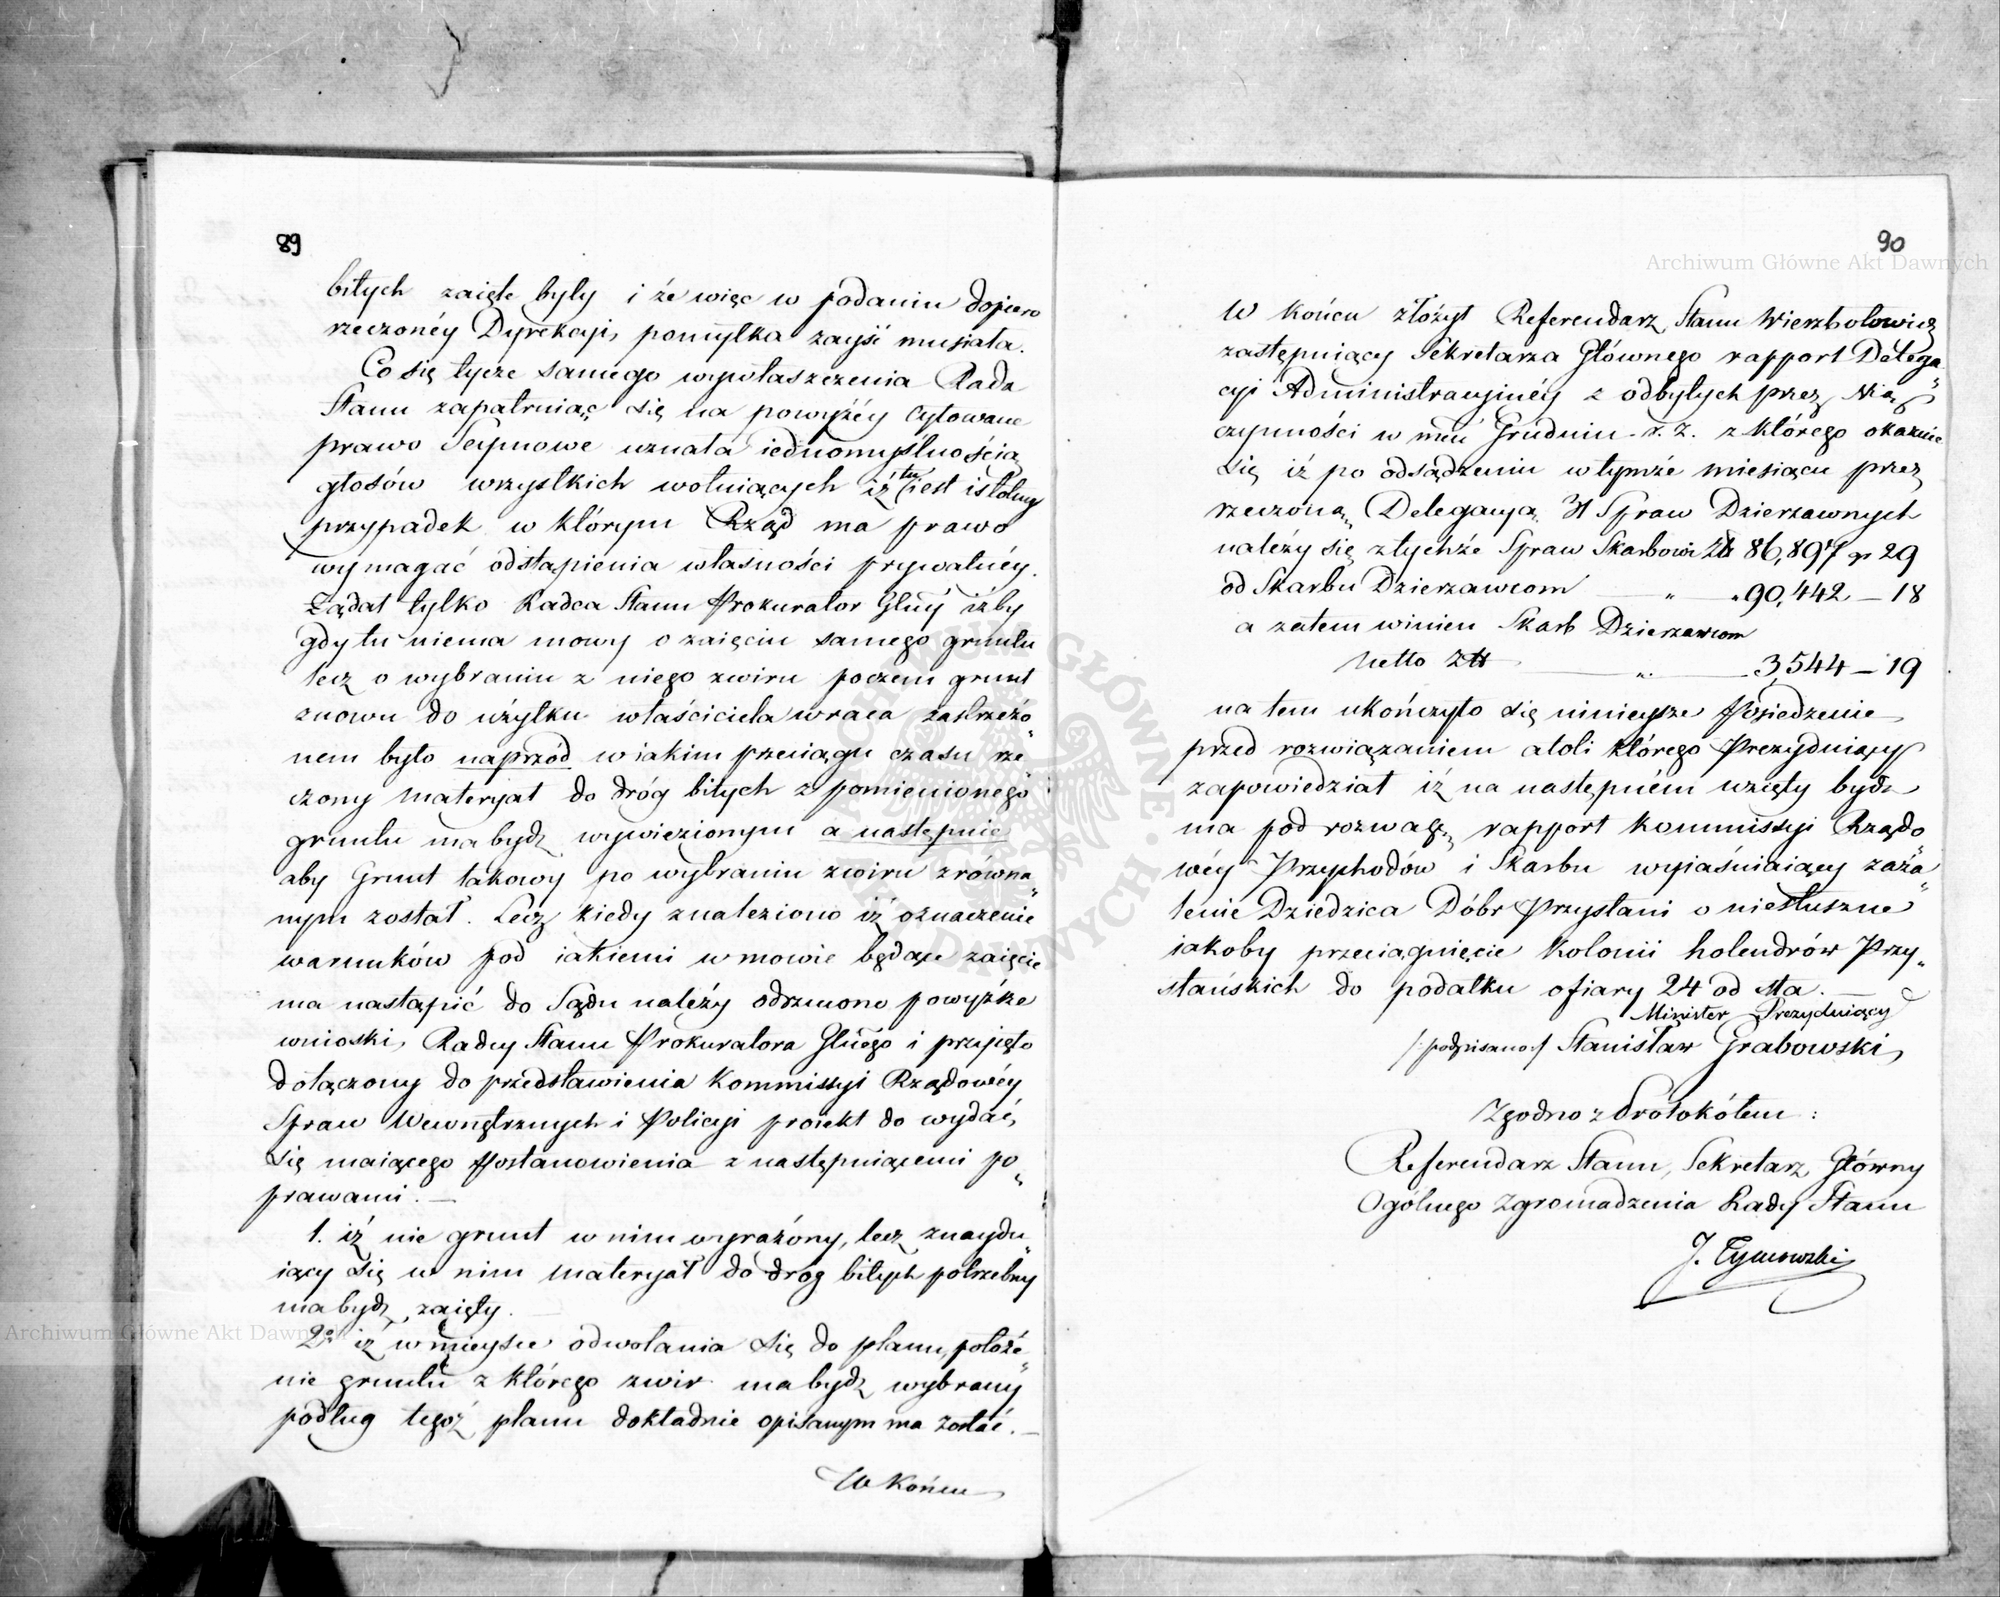 89
bitych zaięte były i że więc w podaniu dopiero
rzeczonéy Dyrekcyi, pomyłka zayść musiała.
Co się tycze samego wywłaszczenia Rada
Stanu zapatruiąc się na powyżéy cytowane
prawo Seymowe uznała iednomyślnością
głosów wszystkich wotuiących iż tu iest istotny
przypadek w którym Rząd ma prawo
wymagać odstąpienia własności prywatnéy.
Żądał tylko Radca Stanu Prokurator Glny iżby
gdy tu niema mowy o zaięciu samego gruntu
lecz o wybraniu z niego zwiru poczem grunt
znowu do użytku właściciela wraca zastrzeżo„
nem było naprzód w iakim przeciągu czasu rze„
czony materyał do dróg bitych z pomienionego
gruntu ma bydź wywiezionym a następnie
aby Grunt takowy po wybraniu zwiru zrówna„
nym został. Lecz kiedy znaleziono iż oznaczenie
warunków pod iakiemi w mowie będące zaięcie
ma nastąpić do Sądu należy odrzucono powyższe
wnioski, Radcy Stanu Prokuratora Glnego i przyięto
dołączony do przedstawienia Kommissyi Rządowéy
Spraw Wewnętrznych i Policyi proiekt do wydać
się maiącego Postanowienia z następuiącemi po„
prawami. —
1. iż nie grunt w nim wyrażony, lecz znaydu„
iący się w nim materyał do dróg bitych potrzebny
ma bydź zaięty. —
2º iż w mieysce odwołania się do planu, położe„
nie gruntu z którego zwir ma bydź wybrany
podług tegoż planu dokładnie opisanym ma zostać. —
W Końcu
90
W Końcu złożył Referendarz Stanu Wierzbołowicz
zastępuiący Sekretarza Głównego rapport Delega„
cyi Administracyinéy z odbytych przez Nią
czynności w mcu Grudniu r. z. z którego okazuie
się iż po odsądzeniu w tymże miesiącu przez
rzeczoną Delegacyą 31 Spraw Dzierzawnych
należy się z tychże Spraw Skarbowi Zł 86,897 gr 29
od Skarbu Dzierzawcom — „ — „ 90,442 — 18
a zatem winien Skarb Dzierzawcom
Netto Zł — „ — 3,544 — 19
na tem ukończyło się ninieysze Posiedzenie
przed rozwiązaniem atoli którego Prezyduiący
zapowiedział iż na następném wzięty bydź
ma pod rozwagę rapport Kommissyi Rządo„
wéy Przychodów i Skarbu wyiaśniaiący zaża„
lenie Dziedzica Dóbr Przystani o niesłuszne
iakoby przeciągnięcie Kolonii holendrów Przy„
stańskich do podatku ofiary 24 od sta. —
Minister Prezyduiący
/: podpisano :/ Stanisław Grabowski
Zgodno z Protokółem :
Referendarz Stanu, Sekretarz Główny
Ogólnego Zgromadzenia Rady Stanu
J. Tymowski
Archiwum Główne Akt Dawnych
Archiwum Główne Akt Dawnych
ARCHIWUM GŁÓWNE AKT DAWNYCH